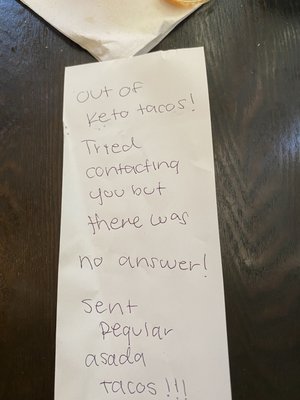 out of
keto tacos!
Tried
contacting
you but
there was
no answer!
Sent
Regular
asada
tacos!!!